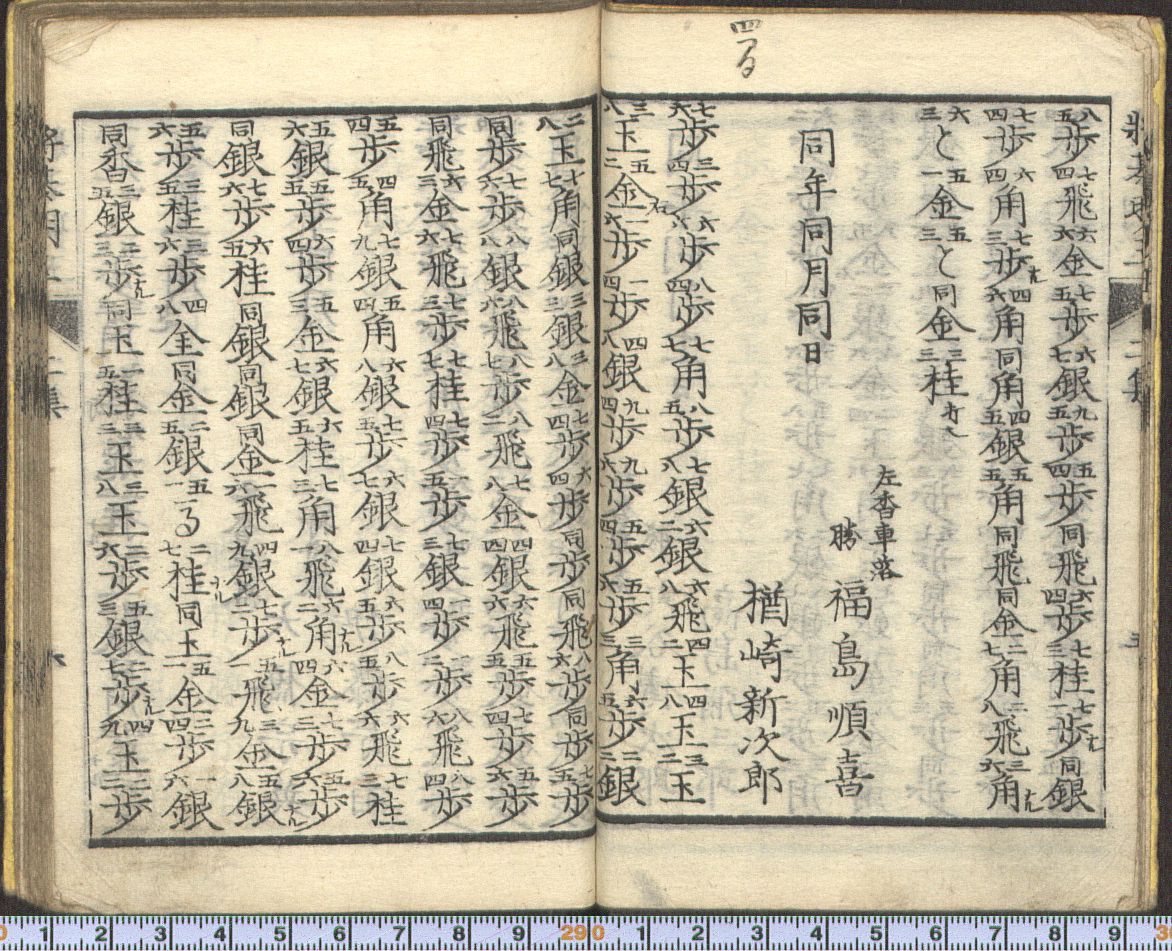 八五歩七四飛六六金七五歩六七銀九五歩五四歩同飛六四歩七三桂七一歩同銀
七四歩六四角七三歩四六角同角四五銀五五角同飛同金二七角二八飛三六角
六三と五一金五三と同金三三桂
同年同月同日
左香車落
勝 福島順喜
楢崎新次郎
七六歩三四歩六六歩八四歩七七角八五歩七八銀六二銀六八飛四二玉四八玉三三玉
三八玉五二金右六歩一四歩四八銀九四歩九六歩五四歩五六歩三三角六五歩二銀
二八玉七七角同銀三三銀三八金七四歩六四歩同歩同飛八六歩同歩七五歩
同歩七六歩八八銀八六飛八七歩八二飛七八金四四銀六六飛五五歩七四歩五六歩
同飛六三金七六飛七三歩七七桂七四歩五歩七三銀一四歩一二歩八六飛八四歩
五四歩四五角七九銀五四角六八銀七五歩六七銀七四銀六五歩八五歩六六飛七三桂
五六銀五五歩六四歩五三金六七銀六五桂七三角八一飛六二角六四金七三歩五六歩
同銀七六歩六五桂同銀同銀同金一六飛四九銀七二歩五一飛三九金五八銀
五六歩三五桂三六歩四八全同金二五銀五一る二七桂同玉五一金二四歩一六銀
同香三五銀三三歩同玉一五桂三二玉三八玉二六歩五三銀二七歩四九玉三三歩